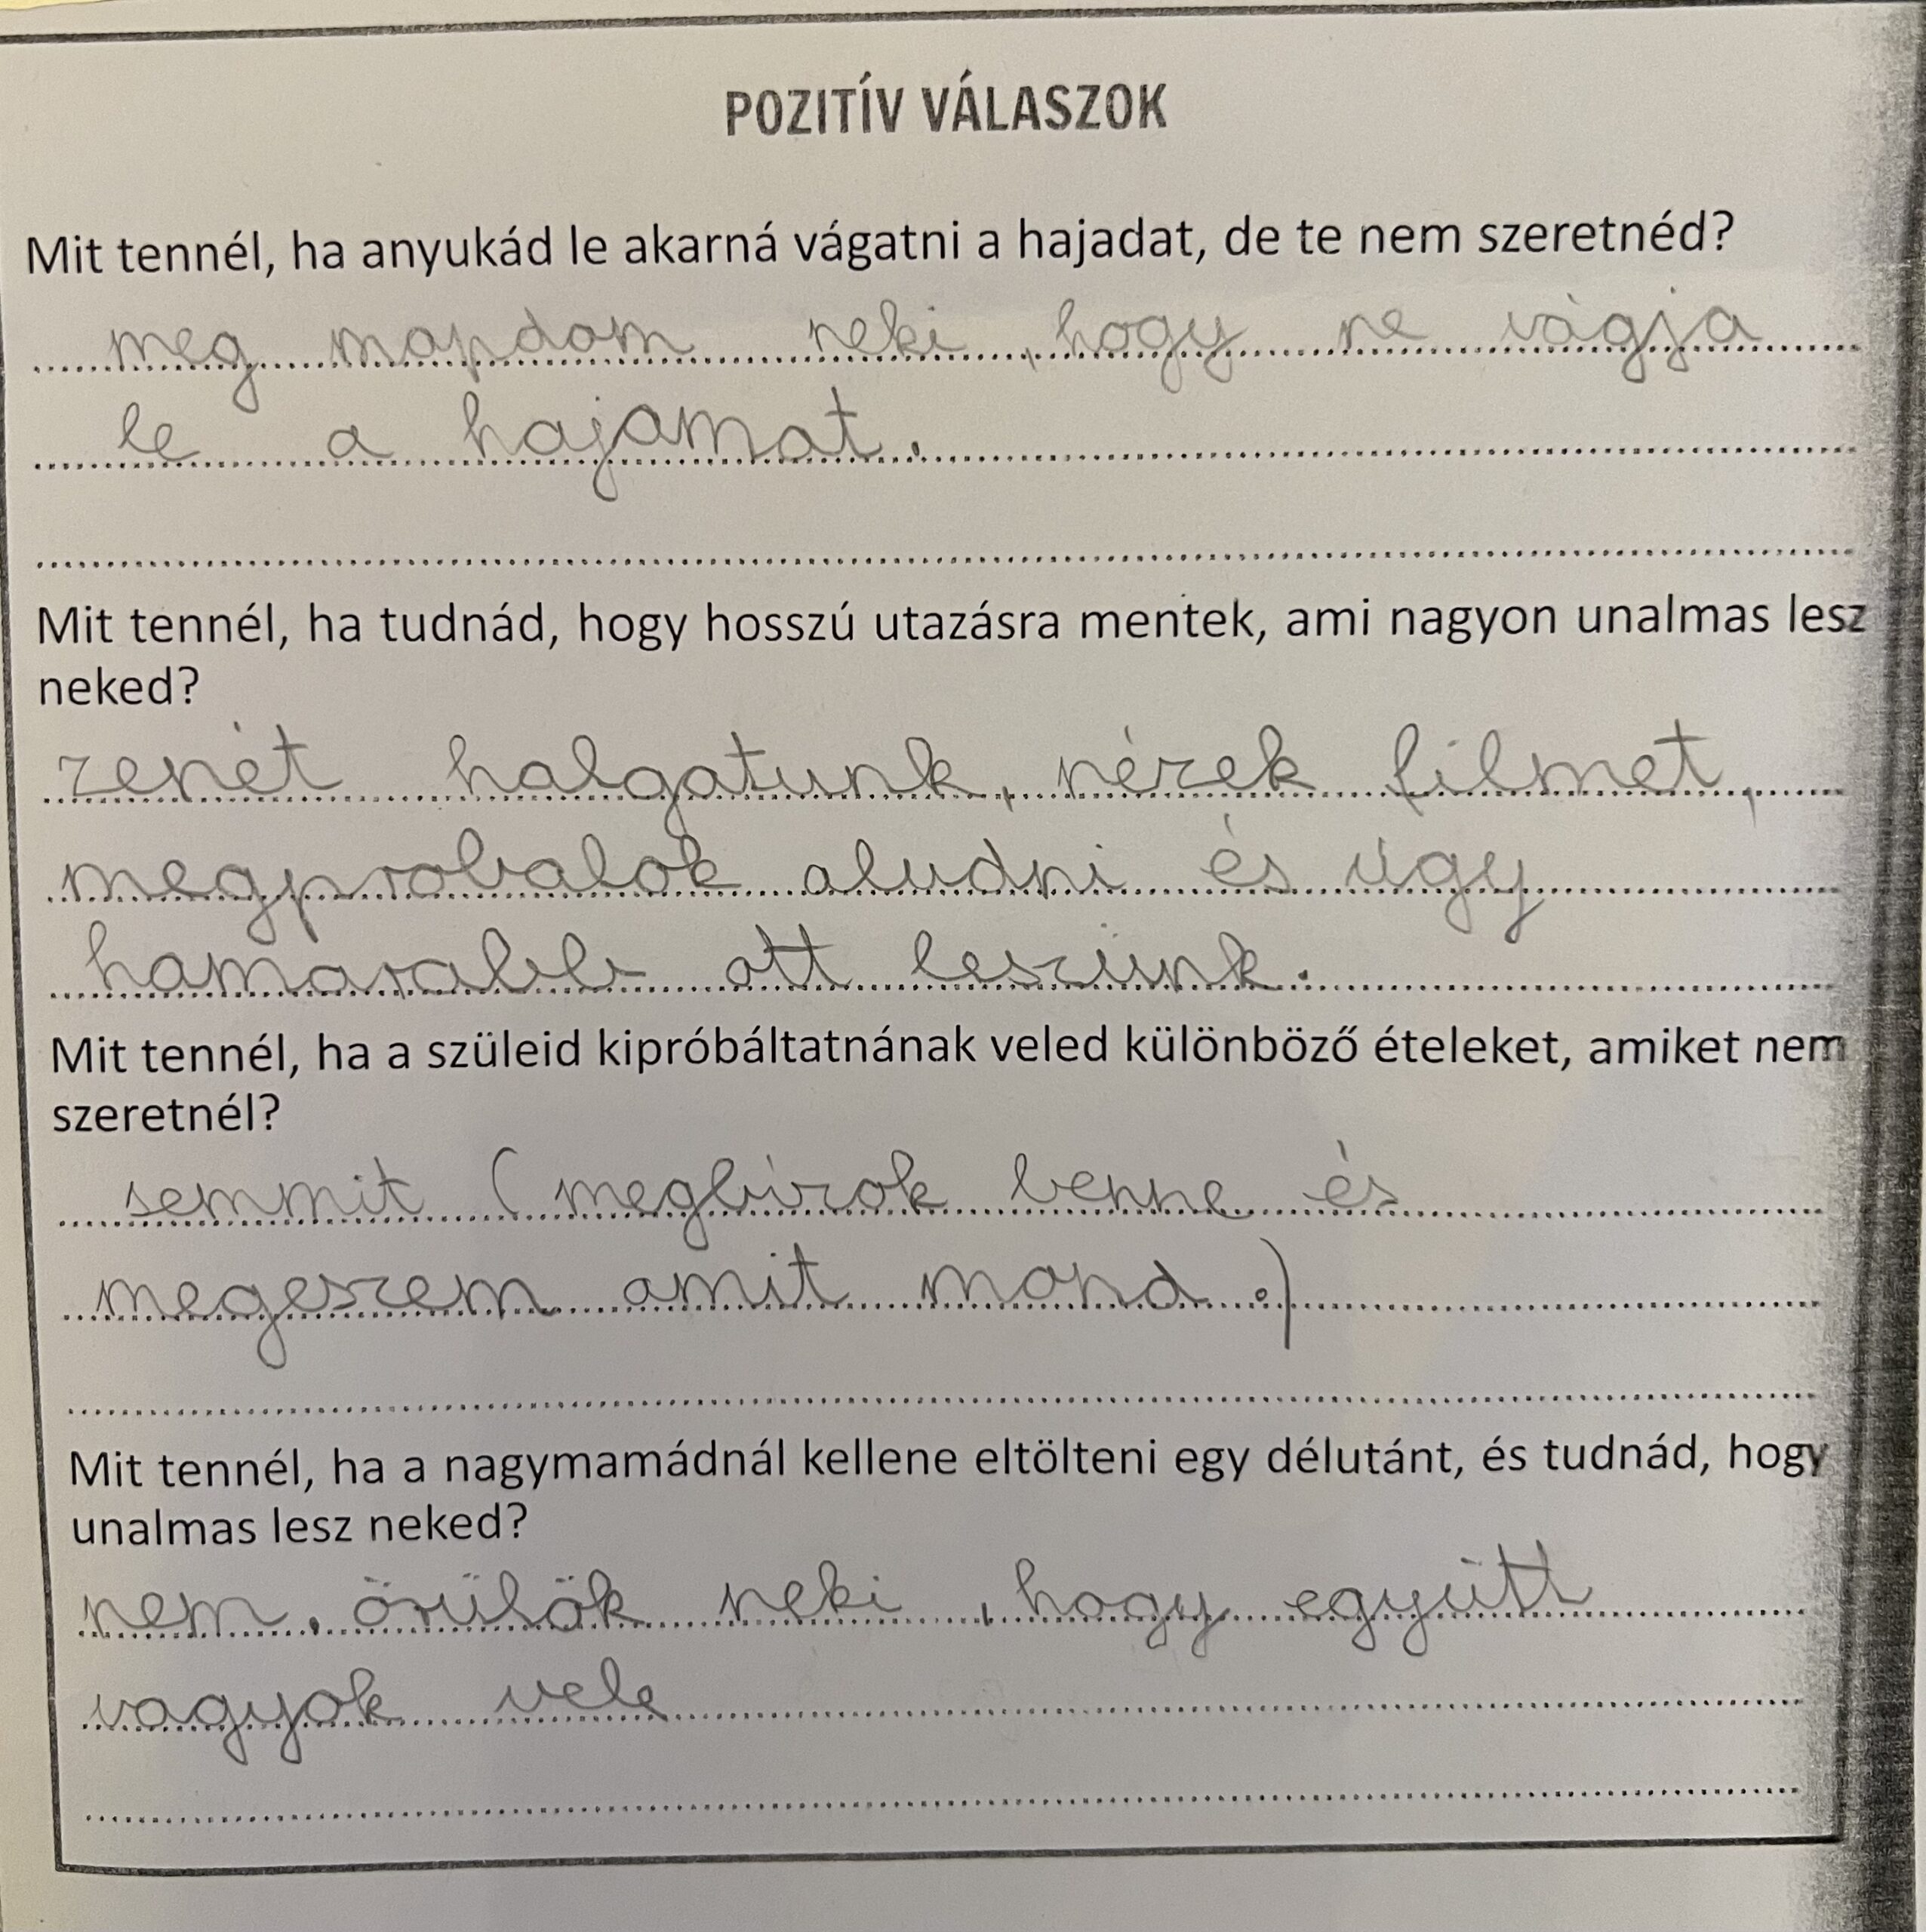 POZITÍV VÁLASZOK
Mit tennél, ha anyukád le akarná vágatni a hajadat, de te nem szeretnéd?
meg mondom neki, hogy ne vágja
le a hajamat.
Mit tennél, ha tudnád, hogy hosszú utazásra mentek, ami nagyon unalmas lesz
neked?
zenét halgatunk, nézek filmet,
megprobalok aludni és úgy
hamarabb ott leszünk.
Mit tennél, ha a szüleid kipróbáltatnának veled különböző ételeket, amiket nem
szeretnél?
semmit (megbírok benne és
megeszem amit mond.)
Mit tennél, ha a nagymamádnál kellene eltölteni egy délutánt, és tudnád, hogy
unalmas lesz neked?
nem. örülök neki, hogy együtt
vagyok vele